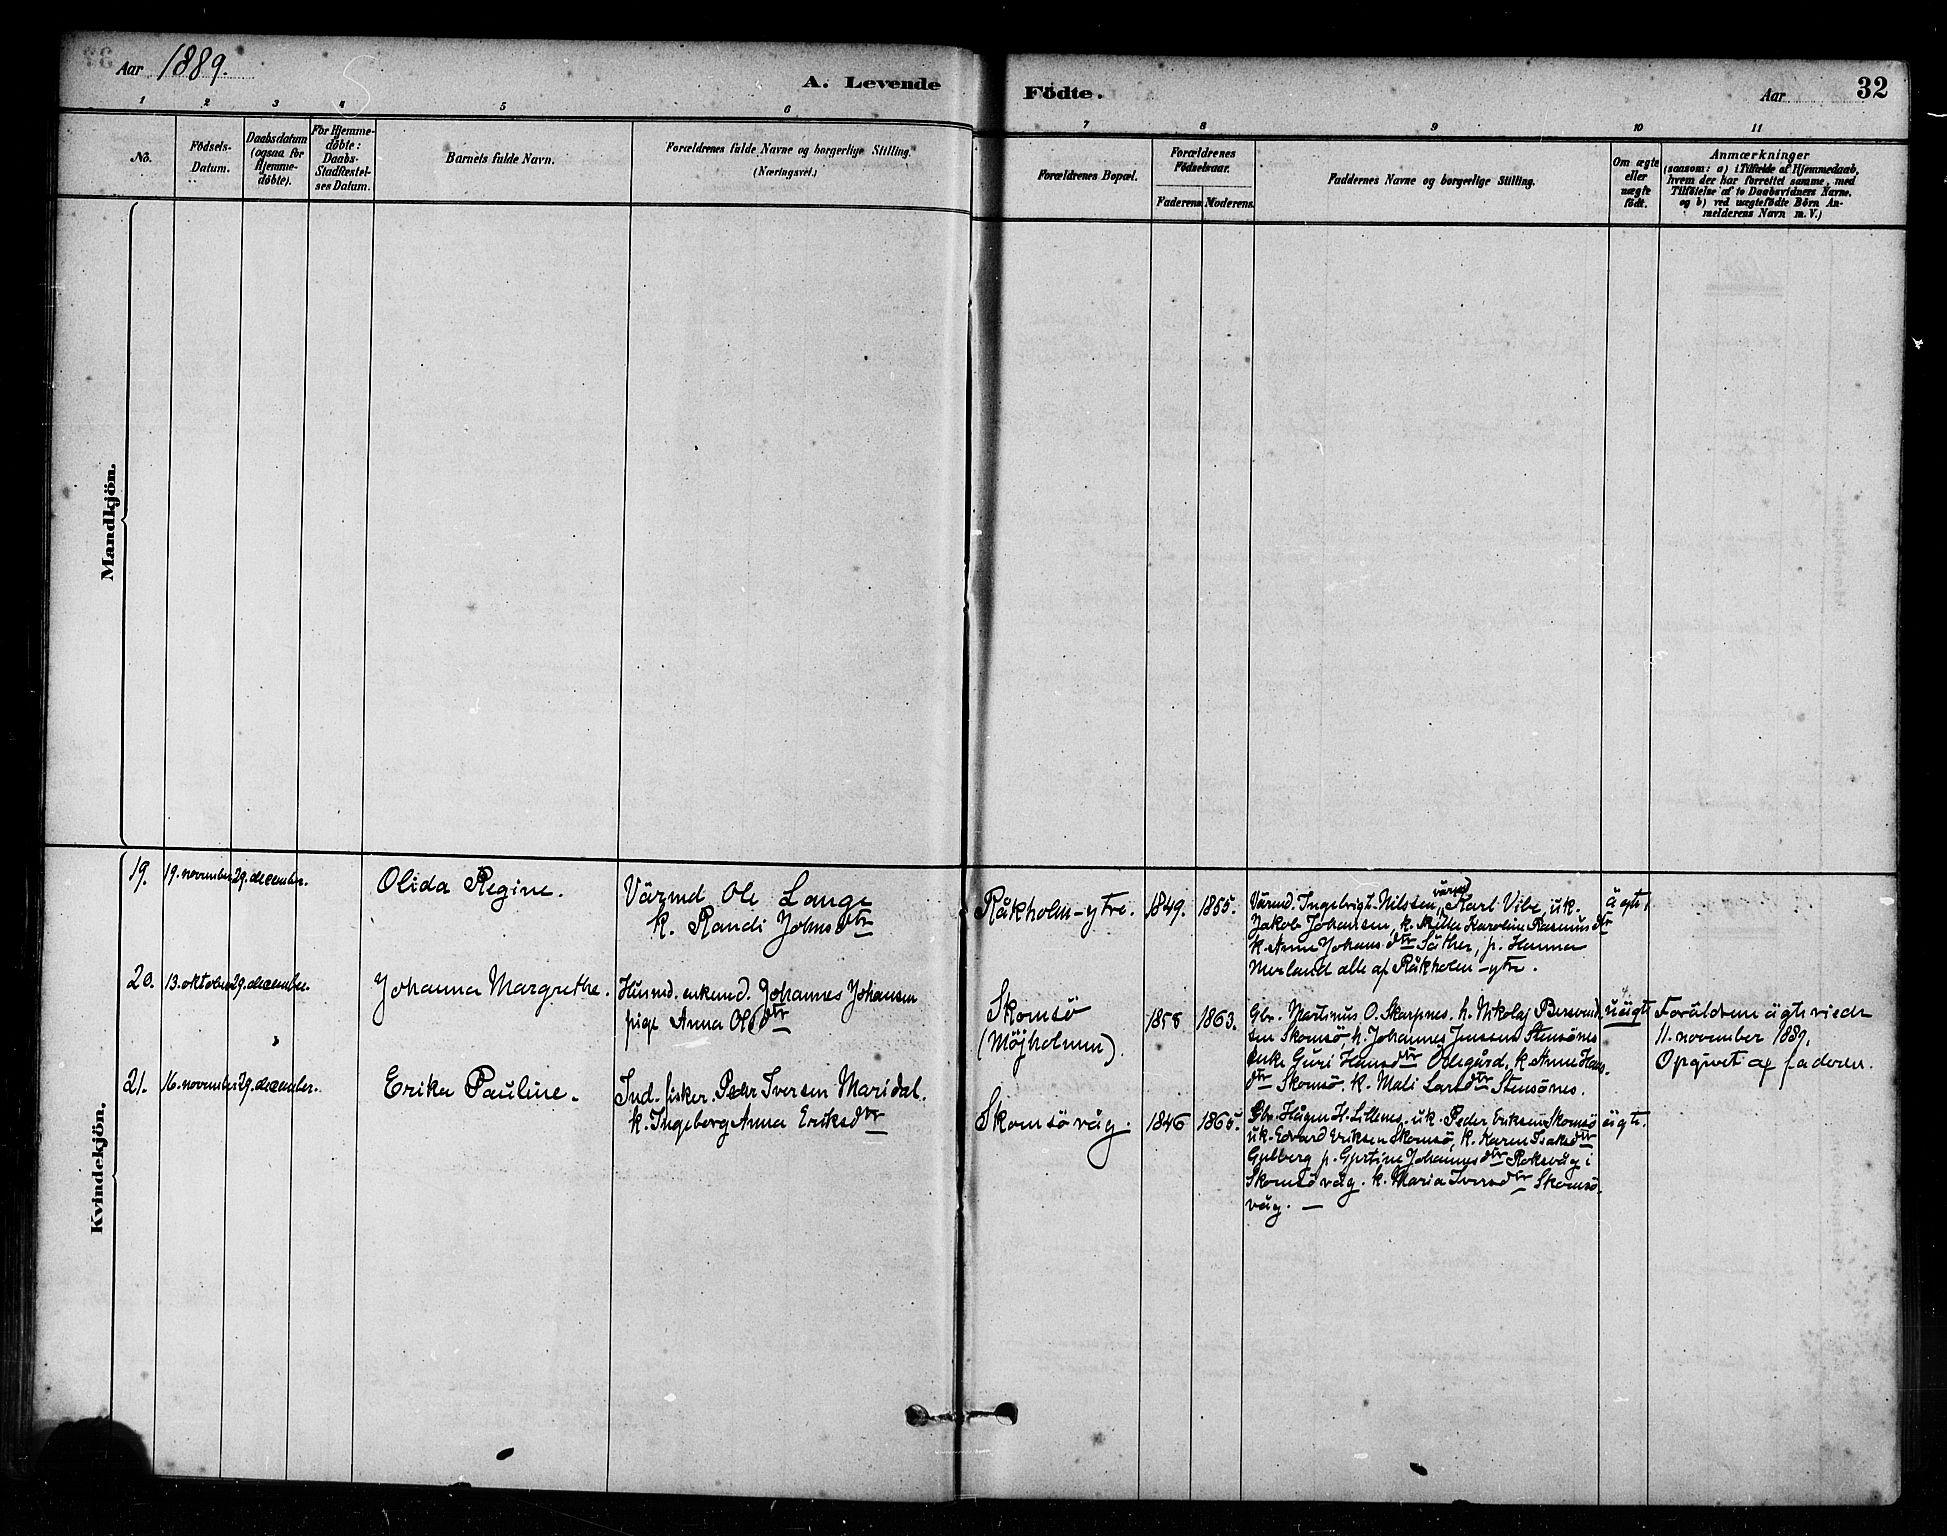 Aar 1889.
A. Levende
Födte.
Aar
32
1 2 3 4 5 6
7 8 9 10 11
No.
Födsels-
Datum.
Daabsdatum
(ogsaa for
Hjemme-
döbte).
For Hjemme-
döbte:
Daabs-
Stadfæstel-
ses Datum.
Barnets fulde Navn.
Forældrenes fulde Navne og borgerlige Stilling.
(Næringsvei.)
Forældrenes Bopæl.
Forældrenes
Födselsaar.
Faderens. Moderens.
Faddernes Navne og borgerlige Stilling.
Om ægte
eller
uægte
födt.
Anmærkninger
(saasom: a) i Tilfælde af Hjemmedaab,
hvem der har forrettet samme, med
Tilföielse af to Daabsvidners Navne.
og b) ved uægtefödte Börn An-
melderens Navn m. V.)
Mandkjön.
Kvindekjön.
19. 19. november 29. december. Olida Regine.
Värmd Ole Lange
k. Randi Johnsdtr
Råkholm-ytre. 1849. 1855.
Värmd. Ingebrigt Nilssen, värmd Karl Vibe, uk.
Jakob Johansen, k. Milla Karoline Rasmusdtr
k. Anne Johansdtr Säther, p. Hanna
Merland alle af Råkholm-ytre.
ägte,
20. 13. oktober 29. december. Johanna Margrethe.
Husmd. enkemd. Johannes Johansen
pige Anna Olsdtr
Skomsö
(Möjholmen).
1858 1863.
Gbr. Martinus O. Skarpnes. h. Nikolaj
Skomsö, h. Johannes Jenssen Stensönes
enke Guri Hansdtr Ödegård, k. Anne Hans-
dtr Skomsö. k. Mali Larsdtr Stensönes.
uägte
Foräldrene ägteviedr
11. november 1889.
Opgivet af faderen.
21. 16. november 29. december. Erika Pauline.
Ind. fisker. Peder Iversen Maridal.
k. Ingeborg Anna Eriksdtr
Skomsövåg. 1846 1865.
Gbr. Hågen H. Lillenes. uk. Peder Eriksen Skomsö
uk. Edvard Eriksen Skomsö, k. Karen Isaksdtr
Gulberg p. Gjertine Johannesdtr Roksvåg i
Skomsövåg. k. Maria Iversdtr Skomsö-
våg. —
ägte.